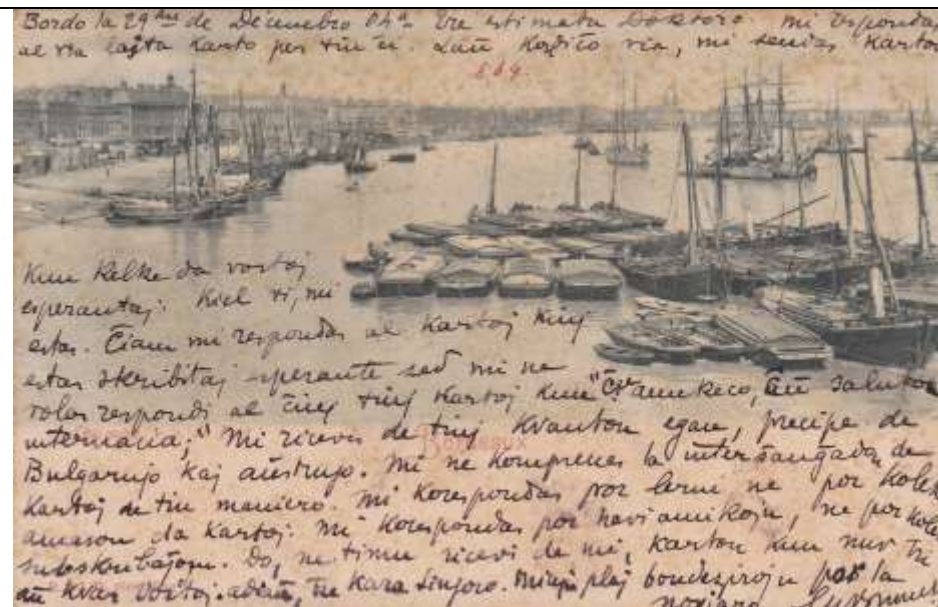 Bordo la 29an de Decembro 04a Tre estimata Doktoro. mi respondas
al via lasta karto per tiu ĉi. Laŭ kredito via, mi sendas karton
569.
kun kelke da vortoj
esperantaj. Kiel vi, mi
estas. Ĉiam mi respondas al kartoj kiuj
estas skribitaj esperante sed mi ne
volas respondi al ĉiuj tiuj kartoj kun "Ĉu amikeco, ĉu saluton
internacia;" Mi ricevis de tiuj kvanton egan, precipe de
Bordeaux
Bulgarujo kaj aŭstrujo. Mi ne komprenas la interŝanĝadon de
kartoj en tiu maniero. Mi korespondas por lerni ne por
amason da kartoj. Mi korespondas por havi amikojn, ne por
Do, ne timu ricevi de mi, karton kun nur tri
aŭ kvar vortoj. adiaŭ, tre kara sinjoro. Miajn plej bondezirojn por la